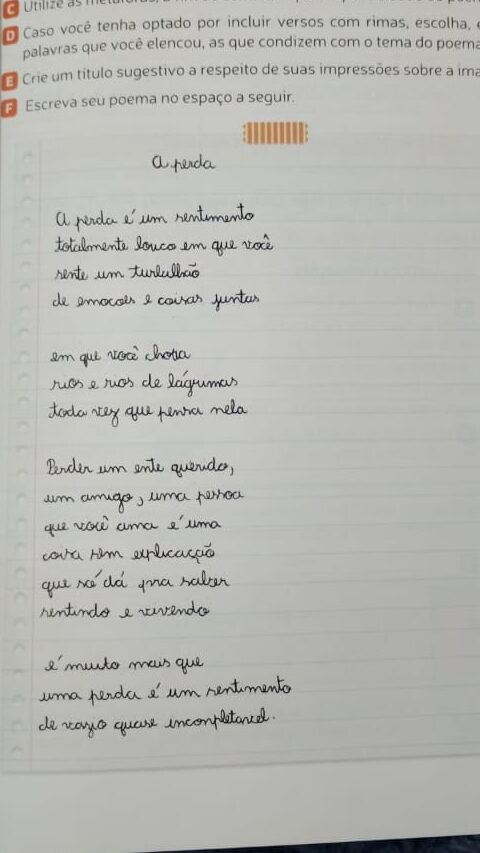 C Utilize as
D Caso você tenha optado por incluir versos com rimas, escolha,
palavras que você elencou, as que condizem com o tema do poema
E Crie um título sugestivo a respeito de suas impressões sobre a ima
F Escreva seu poema no espaço a seguir.
A perda
A perda é um sentimento
totalmente louco em que você
sente um turbulhão
de emocoes e coisas juntas
em que você chora
rios e rios de lágrimas
toda vez que pensa nela
Perder um ente querido,
um amigo, uma pessoa
que você ama é uma
coisa sem explicacção
que só dá pra saber
sentindo e vivendo
é muito mais que
uma perda é um sentimento
de vazio quase inconpletavel.